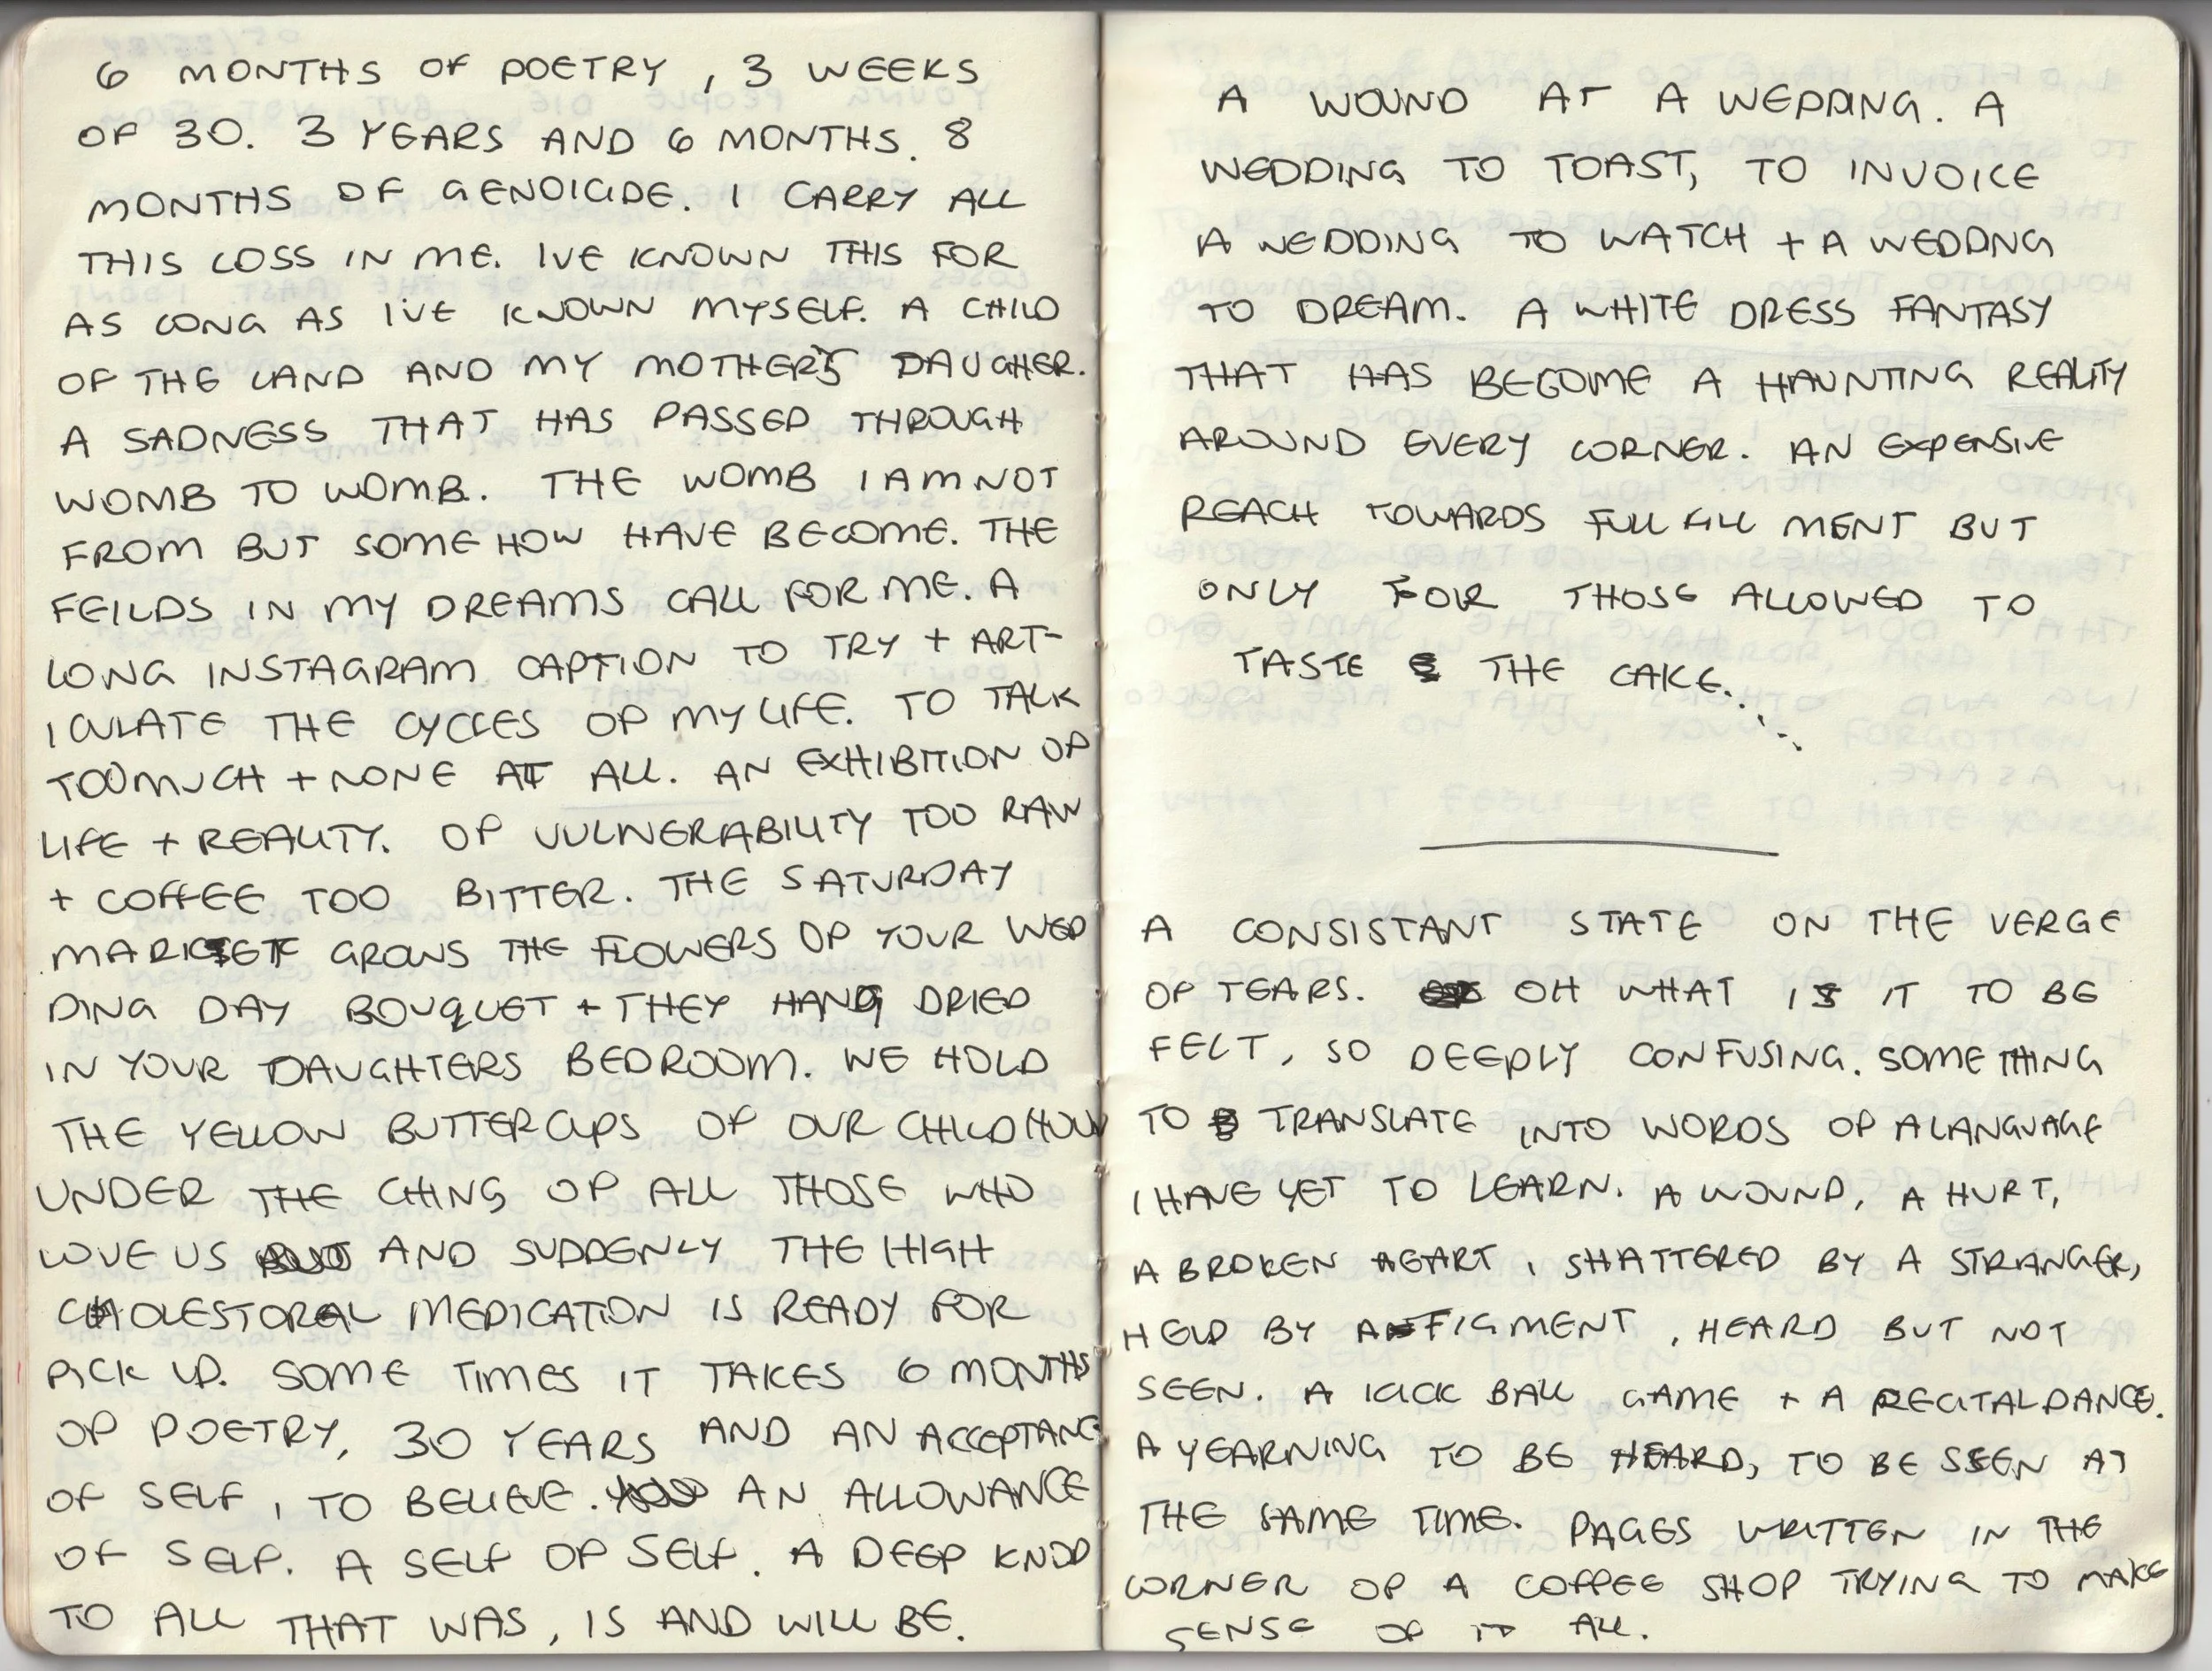 6 MONTHS OF POETRY, 3 WEEKS
OF 30. 3 YEARS AND 6 MONTHS. 8
MONTHS OF GENOICIDE. I CARRY ALL
THIS LOSS IN ME. IVE KNOWN THIS FOR
AS LONG AS I'VE KNOWN MYSELF. A CHILD
OF THE LAND AND MY MOTHER'S DAUGHER.
A SADNESS THAT HAS PASSED THROUGH
WOMB TO WOMB. THE WOMB I AM NOT
FROM BUT SOMEHOW HAVE BECOME. THE
FEILDS IN MY DREAMS CALL FOR ME. A
LONG INSTAGRAM CAPTION TO TRY + ART-
ICULATE THE CYCLES OF MY LIFE. TO TALK
TOO MUCH + NONE AT ALL. AN EXHIBITION OF
LIFE + REALITY. OF VULNERABILITY TOO RAW
+ COFFEE TOO BITTER. THE SATURDAY
MARKET GROWS THE FLOWERS OF YOUR WED
DING DAY BOUQUET + THEY HANG DRIED
IN YOUR DAUGHTERS BEDROOM. WE HOLD
THE YELLOW BUTTERCUPS OF OUR CHILDHOOD
UNDER THE CHINS OF ALL THOSE WHO
LOVE US AND SUDDENLY THE HIGH
CHOLESTORAL MEDICATION IS READY FOR
PICK UP. SOME TIMES IT TAKES 6 MONTHS
OF POETRY, 30 YEARS AND AN ACCEPTANCE
OF SELF, TO BELIEVE. AN ALLOWANCE
OF SELF. A SELF OF SELF. A DEEP KNOD
TO ALL THAT WAS, IS AND WILL BE.
A WOUND AT A WEDDING. A
WEDDING TO TOAST, TO INVOICE
A WEDDING TO WATCH + A WEDDNG
TO DREAM. A WHITE DRESS FANTASY
THAT HAS BECOME A HAUNTING REALITY
AROUND EVERY CORNER. AN EXPENSIVE
REACH TOWARDS FULL FILL MENT BUT
ONLY FOR THOSE ALLOWED TO
TASTE THE CAKE...
A CONSISTANT STATE ON THE VERGE
OF TEARS. OH WHAT IS IT TO BE
FELT, SO DEEPLY CONFUSING. SOMETHING
TO TRANSLATE INTO WORDS OF A LANGUAGE
I HAVE YET TO LEARN. A WOUND, A HURT,
A BROKEN HEART, SHATTERED BY A STRANGER,
HELD BY A FIGMENT, HEARD BUT NOT
SEEN. A KICK BALL GAME + A RECITAL DANCE.
A YEARNING TO BE HEARD, TO BE SEEN AT
THE SAME TIME. PAGES WRITTEN IN THE
CORNER OF A COFFEE SHOP TRYING TO MAKE
SENSE OF IT ALL.